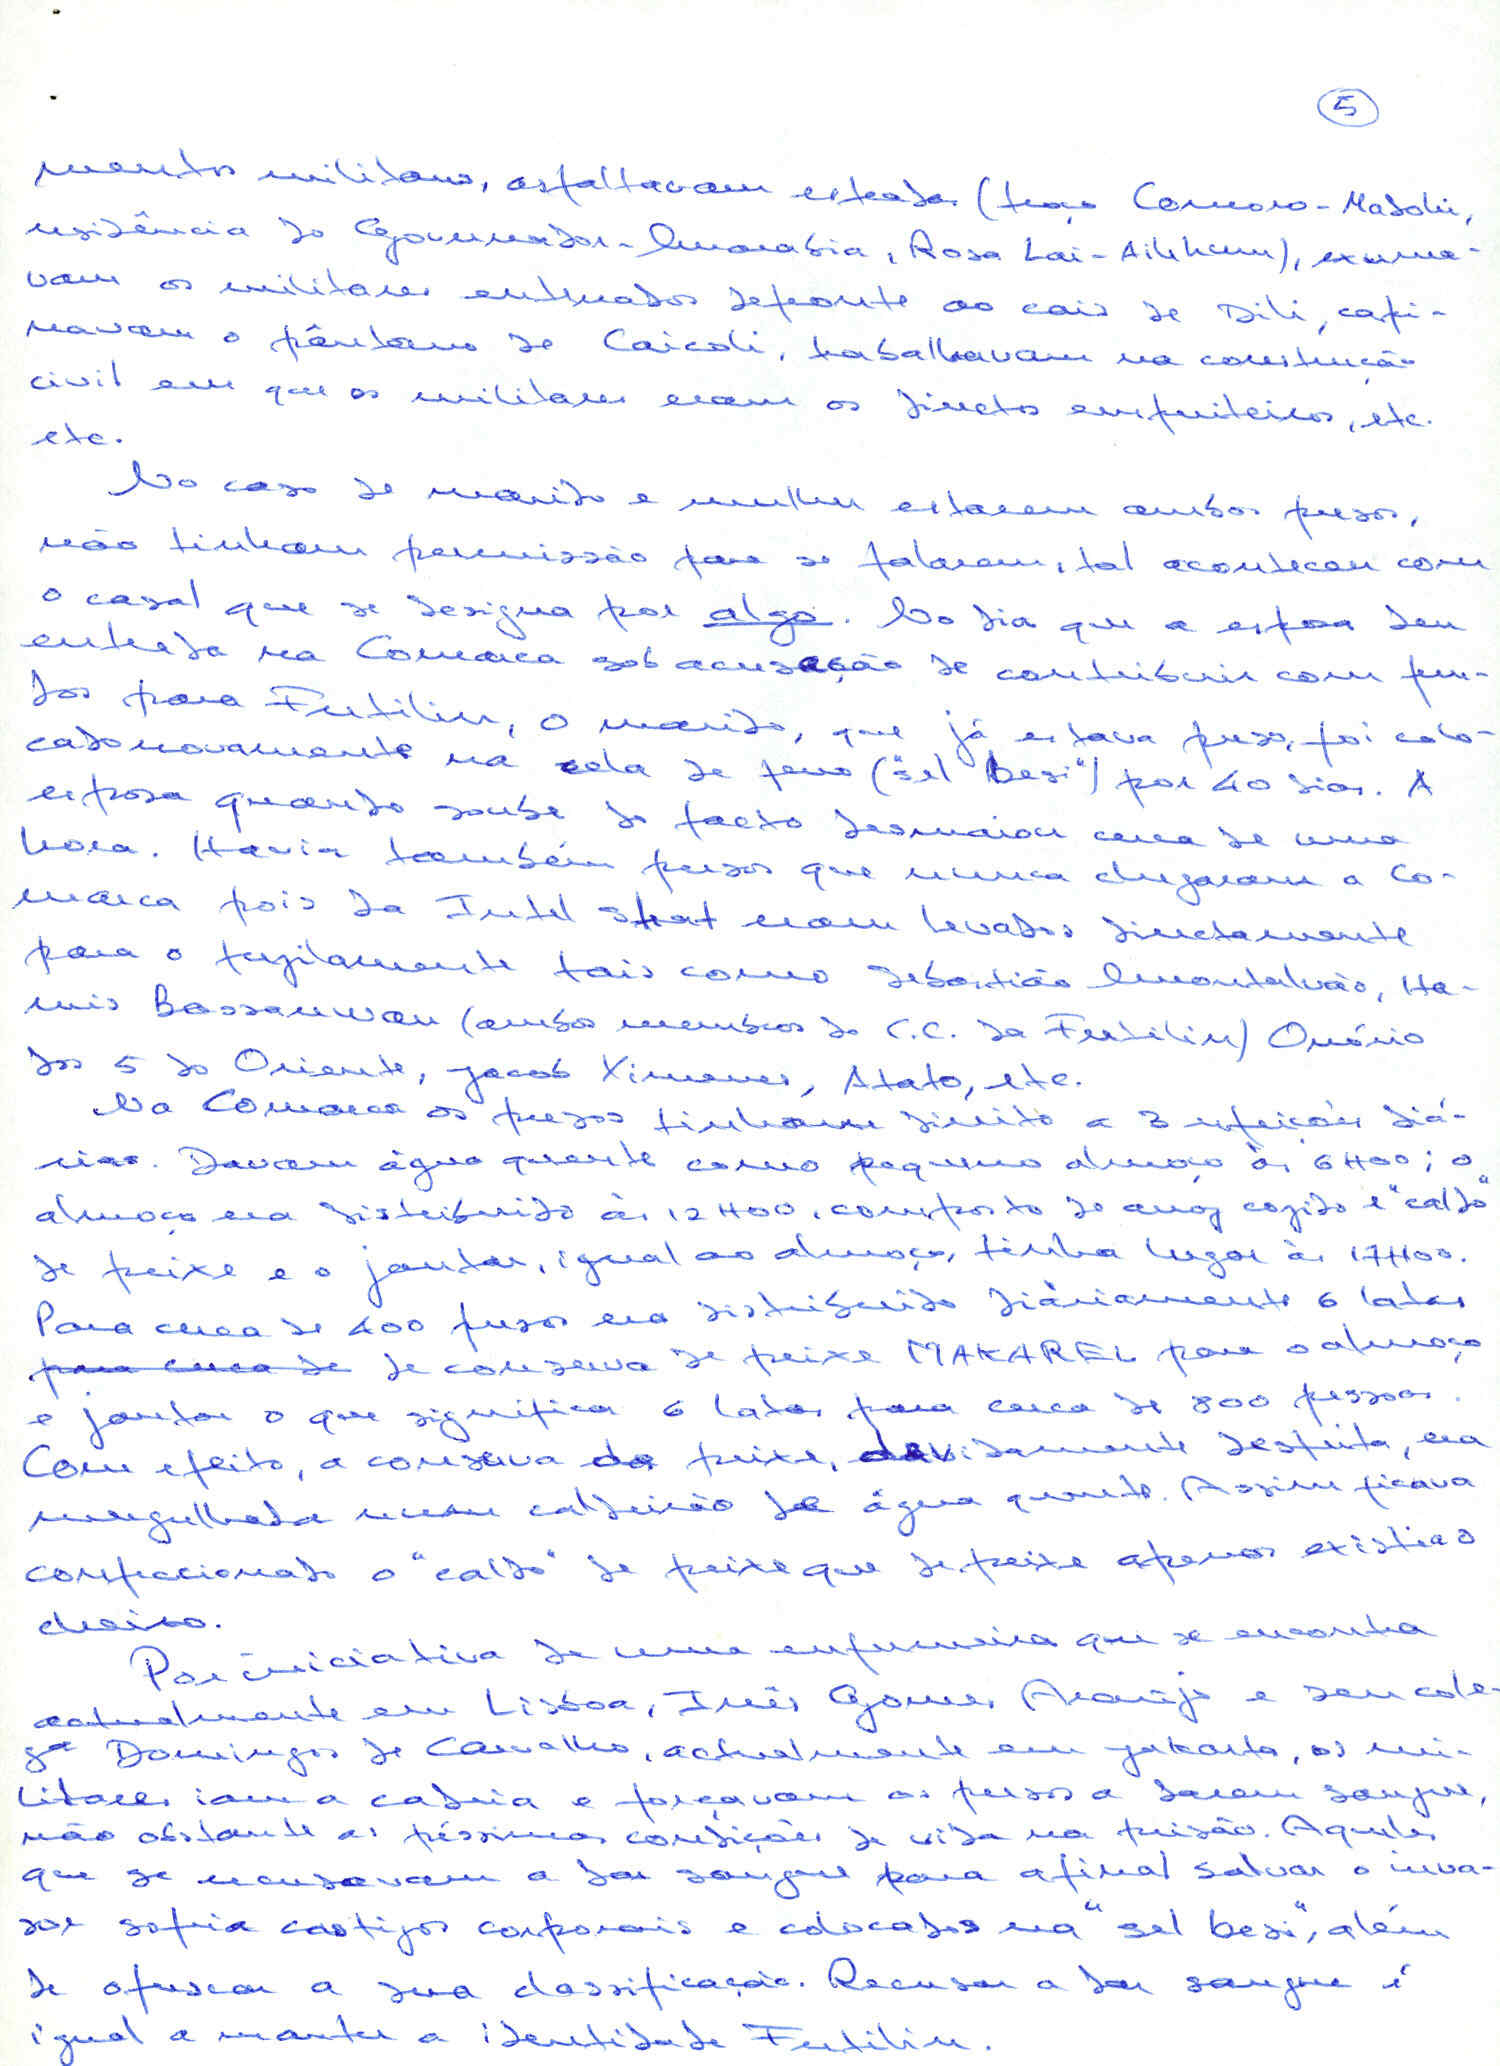 5
mentos militares, asfaltavam estradas (troço Comoro-Madohi,
residência do Governador-Lmarabia, Rosa Lai-Ailihum), exuma-
vam os militares enterrados defronte ao cais de Dili, capi-
navam o pântano de Caicoli, trabalhavam na construção
civil em que os militares eram os directos empreiteiros, etc.
etc.
No caso de marido e mulher estarem ambos presos,
não tinham permissão para se falarem, tal aconteceu com
o casal que se designa por algo. No dia que a esposa deu
entrada na Comarca sob acusação de contribuir com fun-
dos para Fretilin, o marido, que já estava preso, foi colo-
cado novamente na cela de ferro ("sel Besi") por 40 dias. A
esposa quando soube do facto desmaiou cerca de uma
hora. Havia também presos que nunca chegaram a Co-
marca pois da Intel Strat eram levados directamente
para o fuzilamento tais como Sebastião Montalvão, Ha-
mis Bassarewan (ambos membros do C.C. da Fretilin) Onório
dos 5 do Oriente, Jacob Ximenes, Atato, etc.
Na Comarca os presos tinham direito a 3 refeições diá-
rias. Davam água quente como pequeno almoço às 6H00; o
almoço era distribuido às 12H00, composto de arroz cozido e "caldo"
de peixe e o jantar, igual ao almoço, tinha lugar às 17H00.
Para cerca de 400 presos era distribuido diáriamente 6 latas
para cerca de de conserva de peixe MAKAREL para o almoço
e jantar o que significa 6 latas para cerca de 800 pessoas.
Com efeito, a conserva de peixe, devidamente desfeita, era
mergulhada num caldeirão de água quente. Assim ficava
confeccionado o "caldo" de peixe que de peixe apenas existia o
cheiro.
Por iniciativa de uma enfermeira que se encontra
actualmente em Lisboa, Inês Gomes Araújo e seu cole-
ga Domingos de Carvalho, actualmente em Jakarta, os mi-
litares iam a cadeia e forçavam os presos a darem sangue,
não obstante as péssimas condições de vida na prisão. Aqueles
que se recusavam a dar sangue para afinal salvar o inva-
sor sofria castigos corporais e colocados na "sel besi", além
de ofuscar a sua classificação. Recusar a dar sangue é
igual a manter a identidade Fretilin.